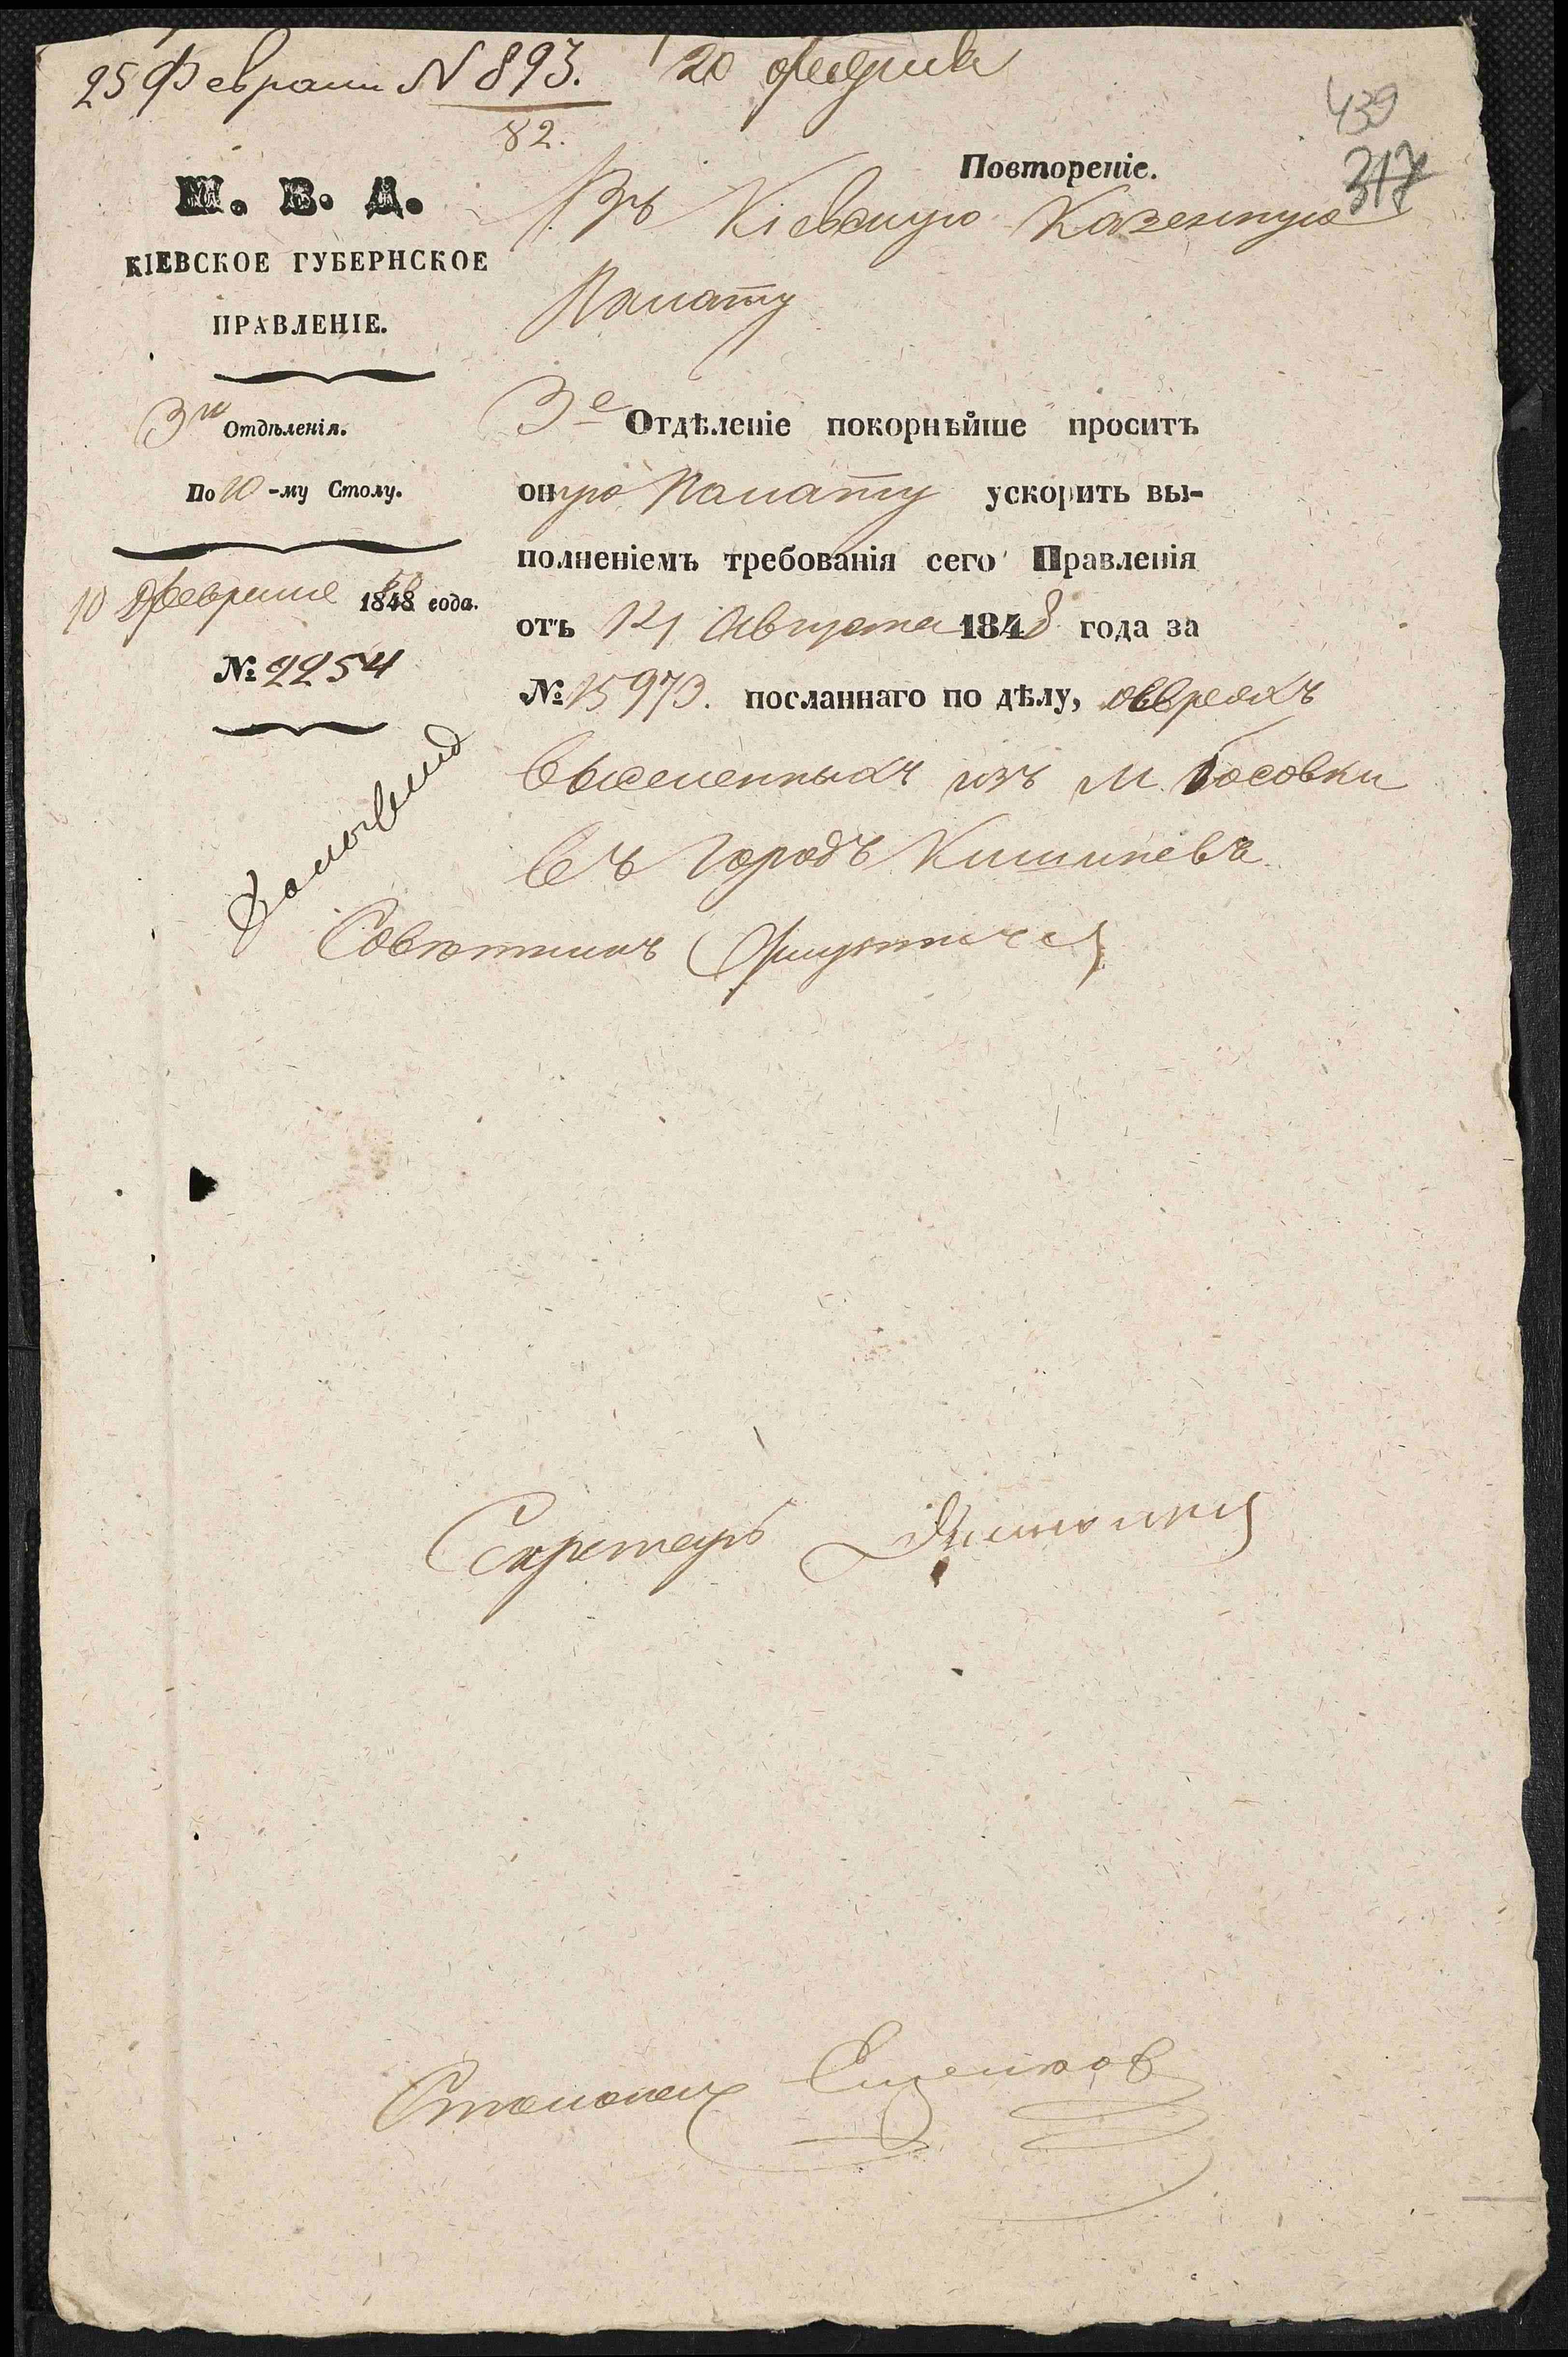 25 Февраля N 893. 20 февраля
82.
439
317
Повтореніе.
М. В. Д.
КІЕВСКОЕ ГУБЕРНСКОЕ
ПРАВЛЕНІЕ.
Въ Кіевскую Казенную
Палату
3го Отдѣленія.
По 10-му Столу.
10 Февраля 1848 года.
№ 2254
3е Отдѣленіе покорнѣйше проситъ
оную Палату ускорить вы-
полненіемъ требованія сего Правленія
отъ 14 Августа 1848 года за
№ 15973. посланнаго по дѣлу, о евреяхъ
выселенныхъ изъ м. Босовки
въ городъ Кишиневъ.
Совѣтникъ
Секретарь
Столонач